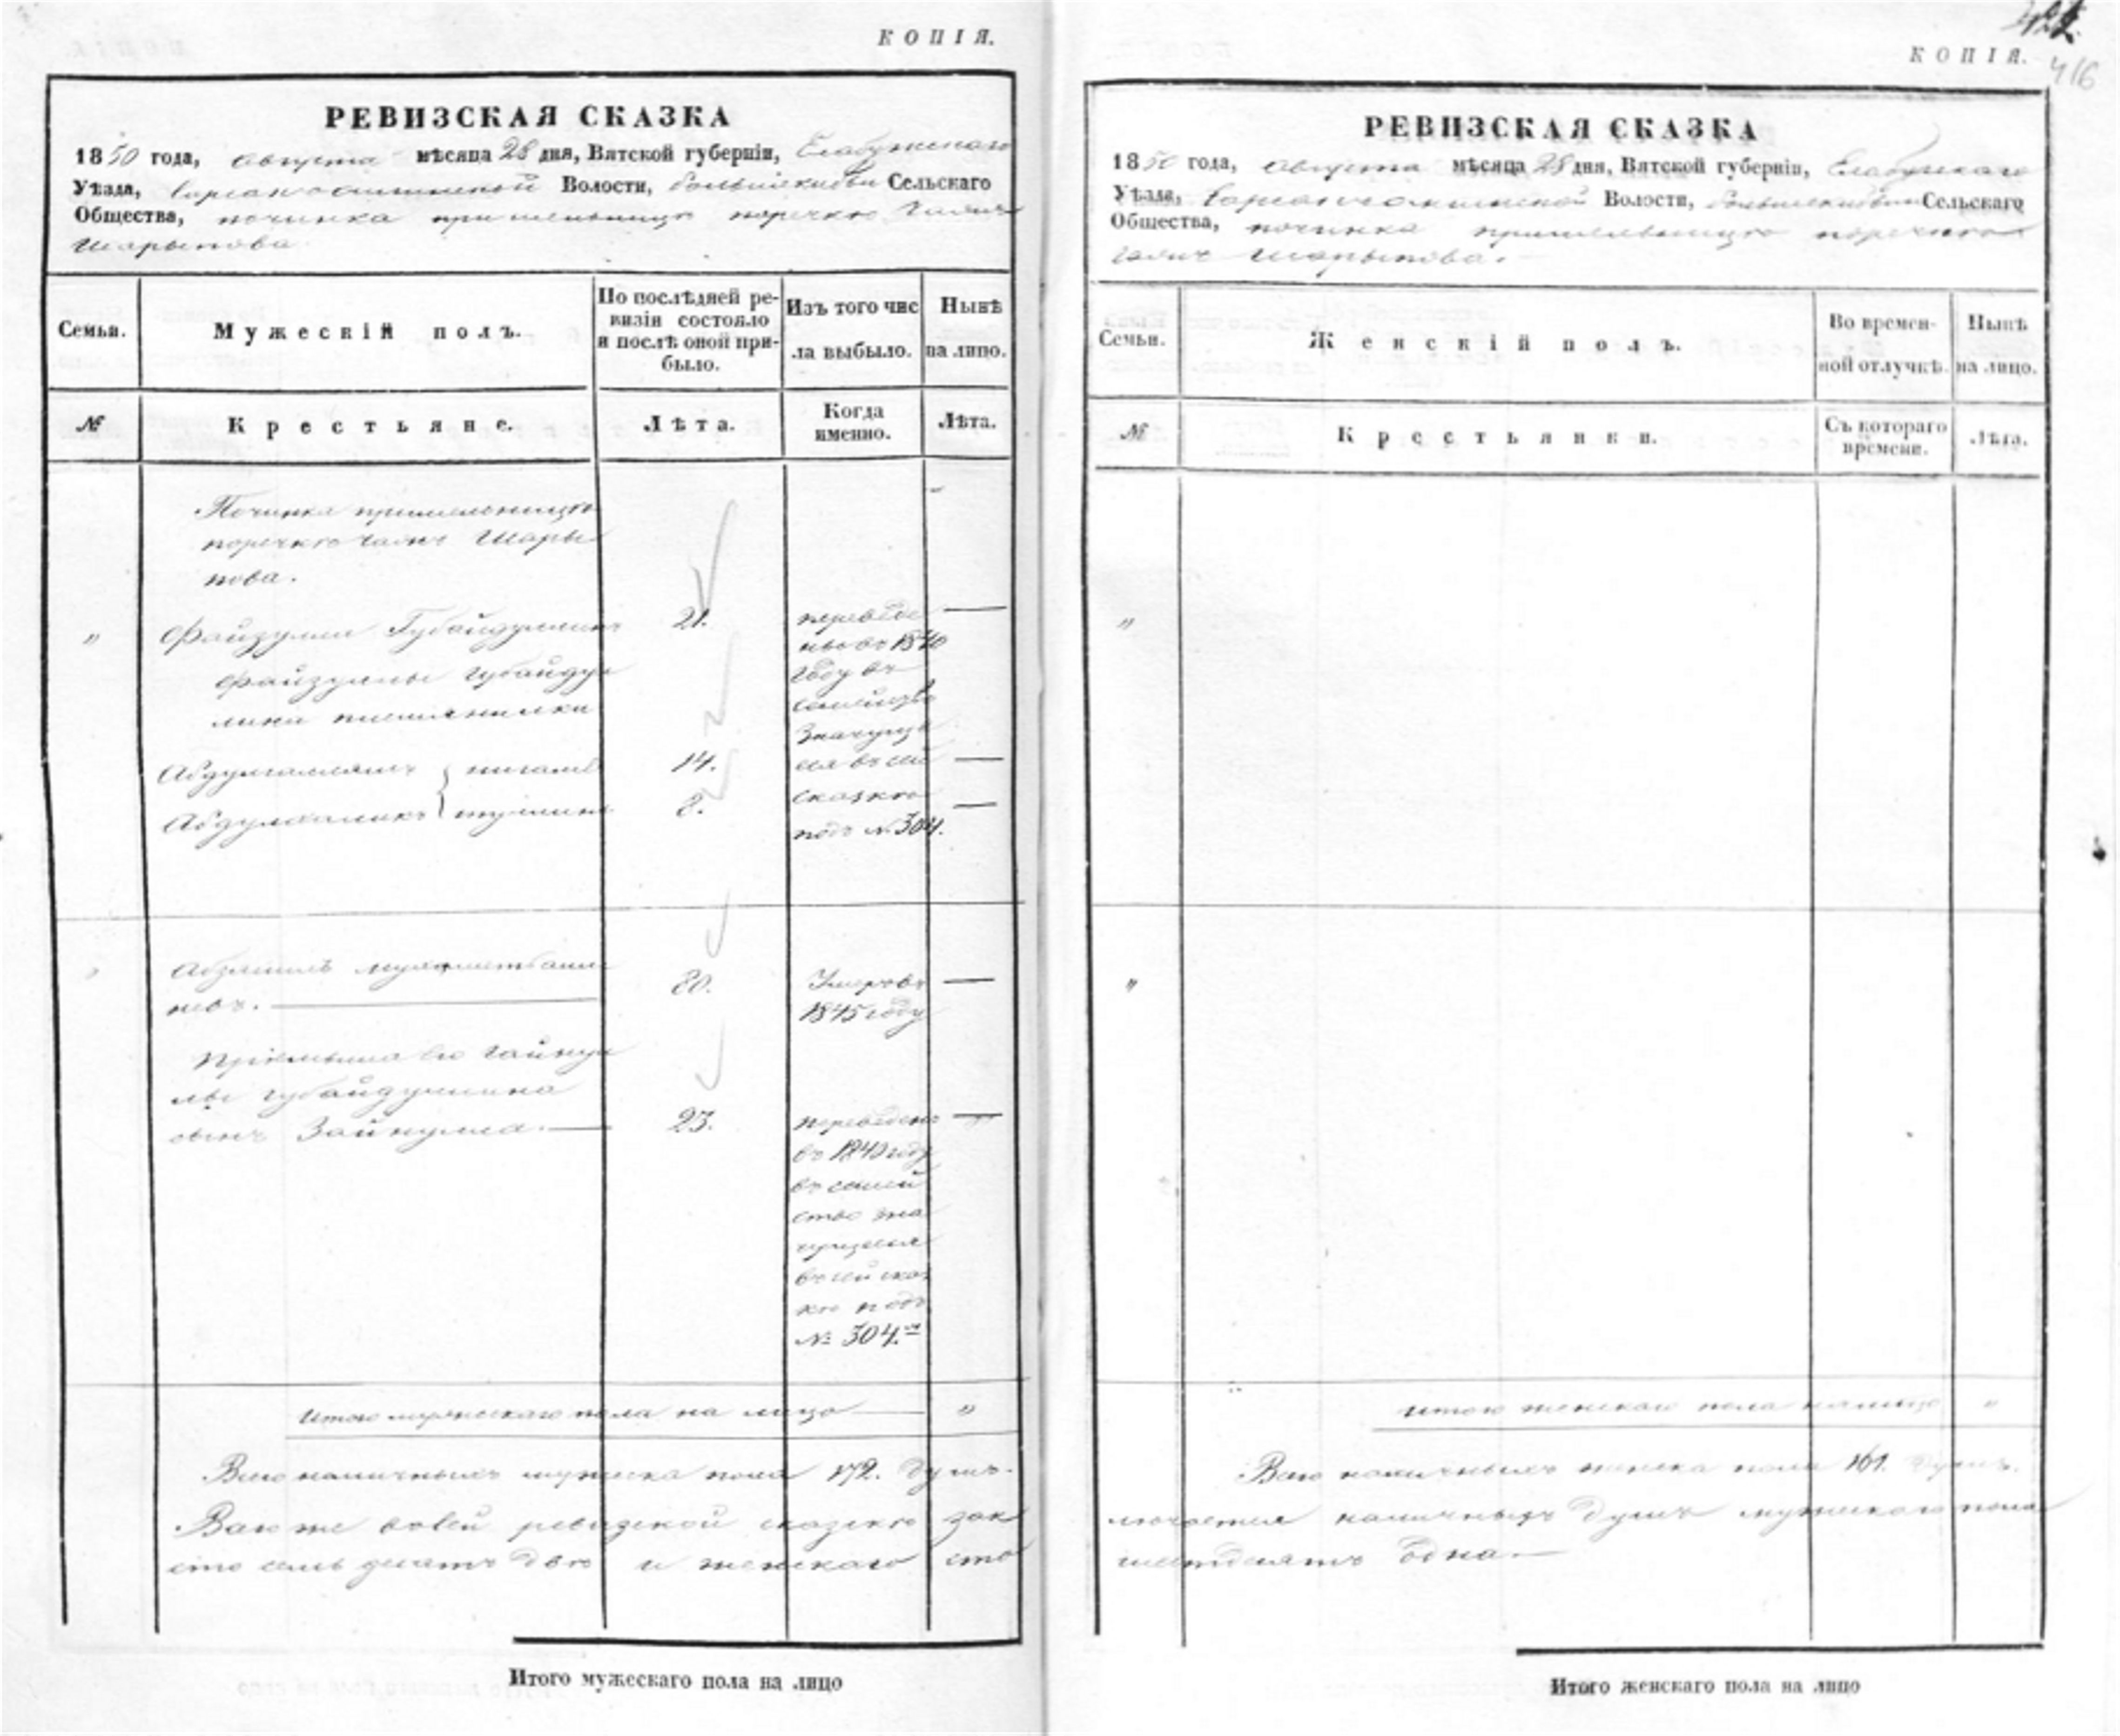 КОПІЯ.
РЕВИЗСКАЯ СКАЗКА
1850 года, августа мѣсяца 28 дня, Вятской губерніи, Елабужскаго
Уѣзда, Волости, Сельскаго
Общества, починка при мельницѣ поречкѣ
Шарыпова
Семьи.
Мужескій полъ.
По послѣдней ре-
визіи состояло
и послѣ оной при-
было.
Изъ того чис
ла выбыло.
Нынѣ
на лицо.
№
Крестьяне.
Лѣта.
Когда
именно.
Лѣта.
Починка при мельницѣ
поречкѣ Шары
пова.
" Файзулла Губайдуллинъ 21. переведе
ны въ 1840
году въ
Файзуллы Губайдул
лина племянники
семейство
значуще
14. еся въ сей
8. сказкѣ
подъ № 304.
80. Умеръ въ
невъ.
1845 году
Пріемыша его Гайнул
лы Губайдуллина
сынъ Зайнулла. 23. переведенъ
въ 1840 году
въ семей
ство зна
чущееся
въ сей сказ
кѣ подъ
№ 304.
Итого мужескаго пола на лицо "
Всего наличныхъ мужеска пола 172. душъ.
Всего же въ сей ревизской сказкѣ зак
сто семьдесятъ двѣ и женскаго сто
Итого мужескаго пола на лицо
416
КОПІЯ.
РЕВИЗСКАЯ СКАЗКА
1850 года, августа мѣсяца 28 дня, Вятской губерніи, Елабужскаго
Уѣзда, Волости, Сельскаго
Общества, починка при мельницѣ поречкѣ
Шарыпова.
Семьи.
Женскій полъ.
Во времен-
ной отлучкѣ.
Нынѣ
на лицо.
№
Крестьянки.
Съ котораго
времени.
Лѣта.
"
"
Итого женскаго пола на лицо "
Всего наличныхъ женска пола 161. душъ.
лючается наличныхъ душъ мужескаго пола
шестдесятъ одна.
Итого женскаго пола на лицо